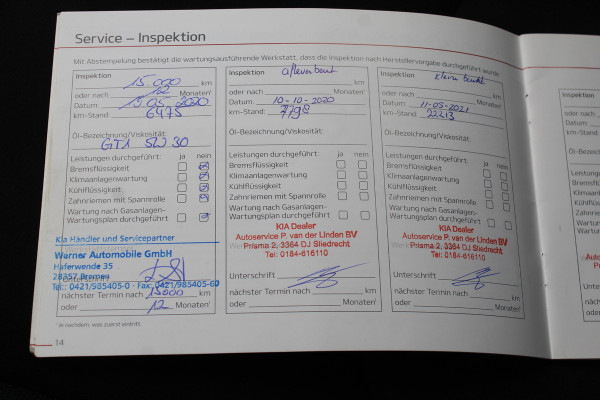 Service – Inspektion
Mit Abstempelung bestätigt die wartungsausführende Werkstatt, dass die Inspektion nach Herstellervorgabe durchgeführt wurde.
Inspektion 15 000 km
oder nach 12 Monaten¹
Datum: 19.05.2020
km-Stand: 6475
Öl-Bezeichnung/Viskosität:
GT1 5W30
Leistungen durchgeführt: ja nein
Bremsflüssigkeit
Klimaanlagenwartung
Kühlflüssigkeit
Zahnriemen mit Spannrolle
Wartung nach Gasanlagen-
Wartungsplan durchgeführt
Kia Händler und Servicepartner
Werner Automobile GmbH
Haferwende 35
28357 Bremen
Tel.: 0421/985405-0 · Fax: 0421/985405-60
nächster Termin nach 15000 km
oder 12 Monaten¹
¹Je nachdem, was zuerst eintritt.
14
Inspektion afleverbeurt
km
oder nach Monaten¹
Datum: 10-10-2020
km-Stand: 7798
Öl-Bezeichnung/Viskosität:
Leistungen durchgeführt: ja nein
Bremsflüssigkeit
Klimaanlagenwartung
Kühlflüssigkeit
Zahnriemen mit Spannrolle
Wartung nach Gasanlagen-
Wartungsplan durchgeführt
KIA Dealer
Autoservice P. van der Linden BV
Prisma 2, 3364 DJ Sliedrecht
Tel: 0184-616110
Unterschrift
nächster Termin nach km
oder Monaten¹
Inspektion kleine beurt
km
oder nach Monaten¹
Datum: 11-05-2021
km-Stand: 22213
Öl-Bezeichnung/Viskosität:
Leistungen durchgeführt: ja nein
Bremsflüssigkeit
Klimaanlagenwartung
Kühlflüssigkeit
Zahnriemen mit Spannrolle
Wartung nach Gasanlagen-
Wartungsplan durchgeführt
KIA Dealer
Autoservice P. van der Linden BV
Prisma 2, 3364 DJ Sliedrecht
Tel: 0184-616110
Unterschrift
nächster Termin nach km
oder Monaten¹
Inspektion
oder nach
Datum:
km-Stand:
Öl-Bezeichnung
Leistungen
Bremsflüssig
Klimaanlage
Kühlflüssig
Zahnriemen
Wartung
Wartungs